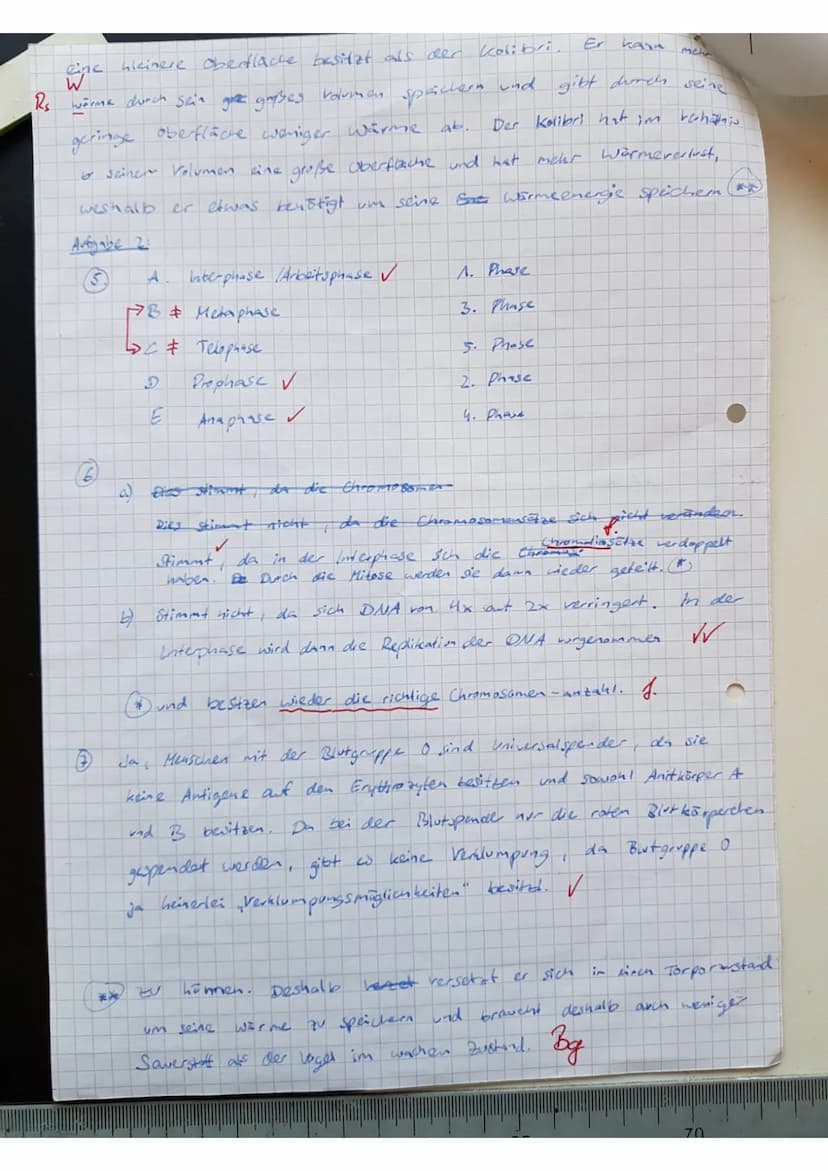 eine kleinere Oberfläche besitzt als der Kolibri. Er kann mehr
W
Rs wärme durch sein großes Volumen speichern und gibt durch seine
geringe Oberfläche weniger Wärme ab. Der Kolibri hat im Verhältnis
seinem Volumen eine große Oberfläche und hat mehr Wärmeverlust,
weshalb er etwas benötigt um seine Wärmeenergie speichern (**)
Aufgabe 2:
5 A. Interphase /Arbeitsphase ✓ 1. Phase
B ≠ Metaphase 3. Phase
C ≠ Telophase 5. Phase
D Prophase ✓ 2. Phase
E Anaphase ✓ 4. Phase
6
a) Dies stimmt, da die Chromosomen
Dies stimmt nicht, da die Chromosomensätze sich nicht verändern.
Stimmt ✓, da in der Interphase sich die Chromatinsätze f. verdoppelt
haben. Durch die Mitose werden sie dann wieder geteilt. (*)
b) Stimmt nicht, da sich DNA von 4x auf 2x verringert. In der
Interphase wird dann die Replikation der DNA vorgenommen ✓✓
(*) und besitzen wieder die richtige Chromosomen-anzahl. f.
7 Ja, Menschen mit der Blutgruppe 0 sind Universalspender, da sie
keine Antigene auf den Erythrozyten besitzen und sowohl Anitkörper A
und B besitzen. Da bei der Blutspende nur die roten Blutkörperchen
gespendet werden, gibt es keine Verklumpung, da Blutgruppe 0
ja keinerlei „Verklumpungsmöglichkeiten" besitzt. ✓
(**) zu können. Deshalb versetzt er sich in einen Torporzustand
um seine Wärme zu speichern und braucht deshalb auch weniger
Sauerstoff als der Vogel im wachen Zustand. Bg
70